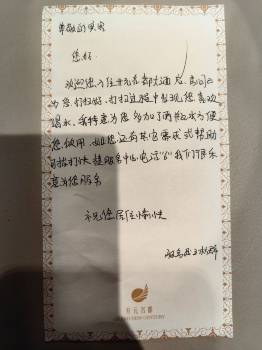 尊敬的贵宾
您好
欢迎您入住开元名都大酒店,房间已
为您打扫好,打扫过程中发现您喜欢
喝水,我特意为您多加了两瓶水方便
您使用,如您还有其它需求或帮助
可拨打快捷服务中心电话"6"我们很乐
意为您服务
祝您居住愉快
服务员
开元名都
NEW CENTURY